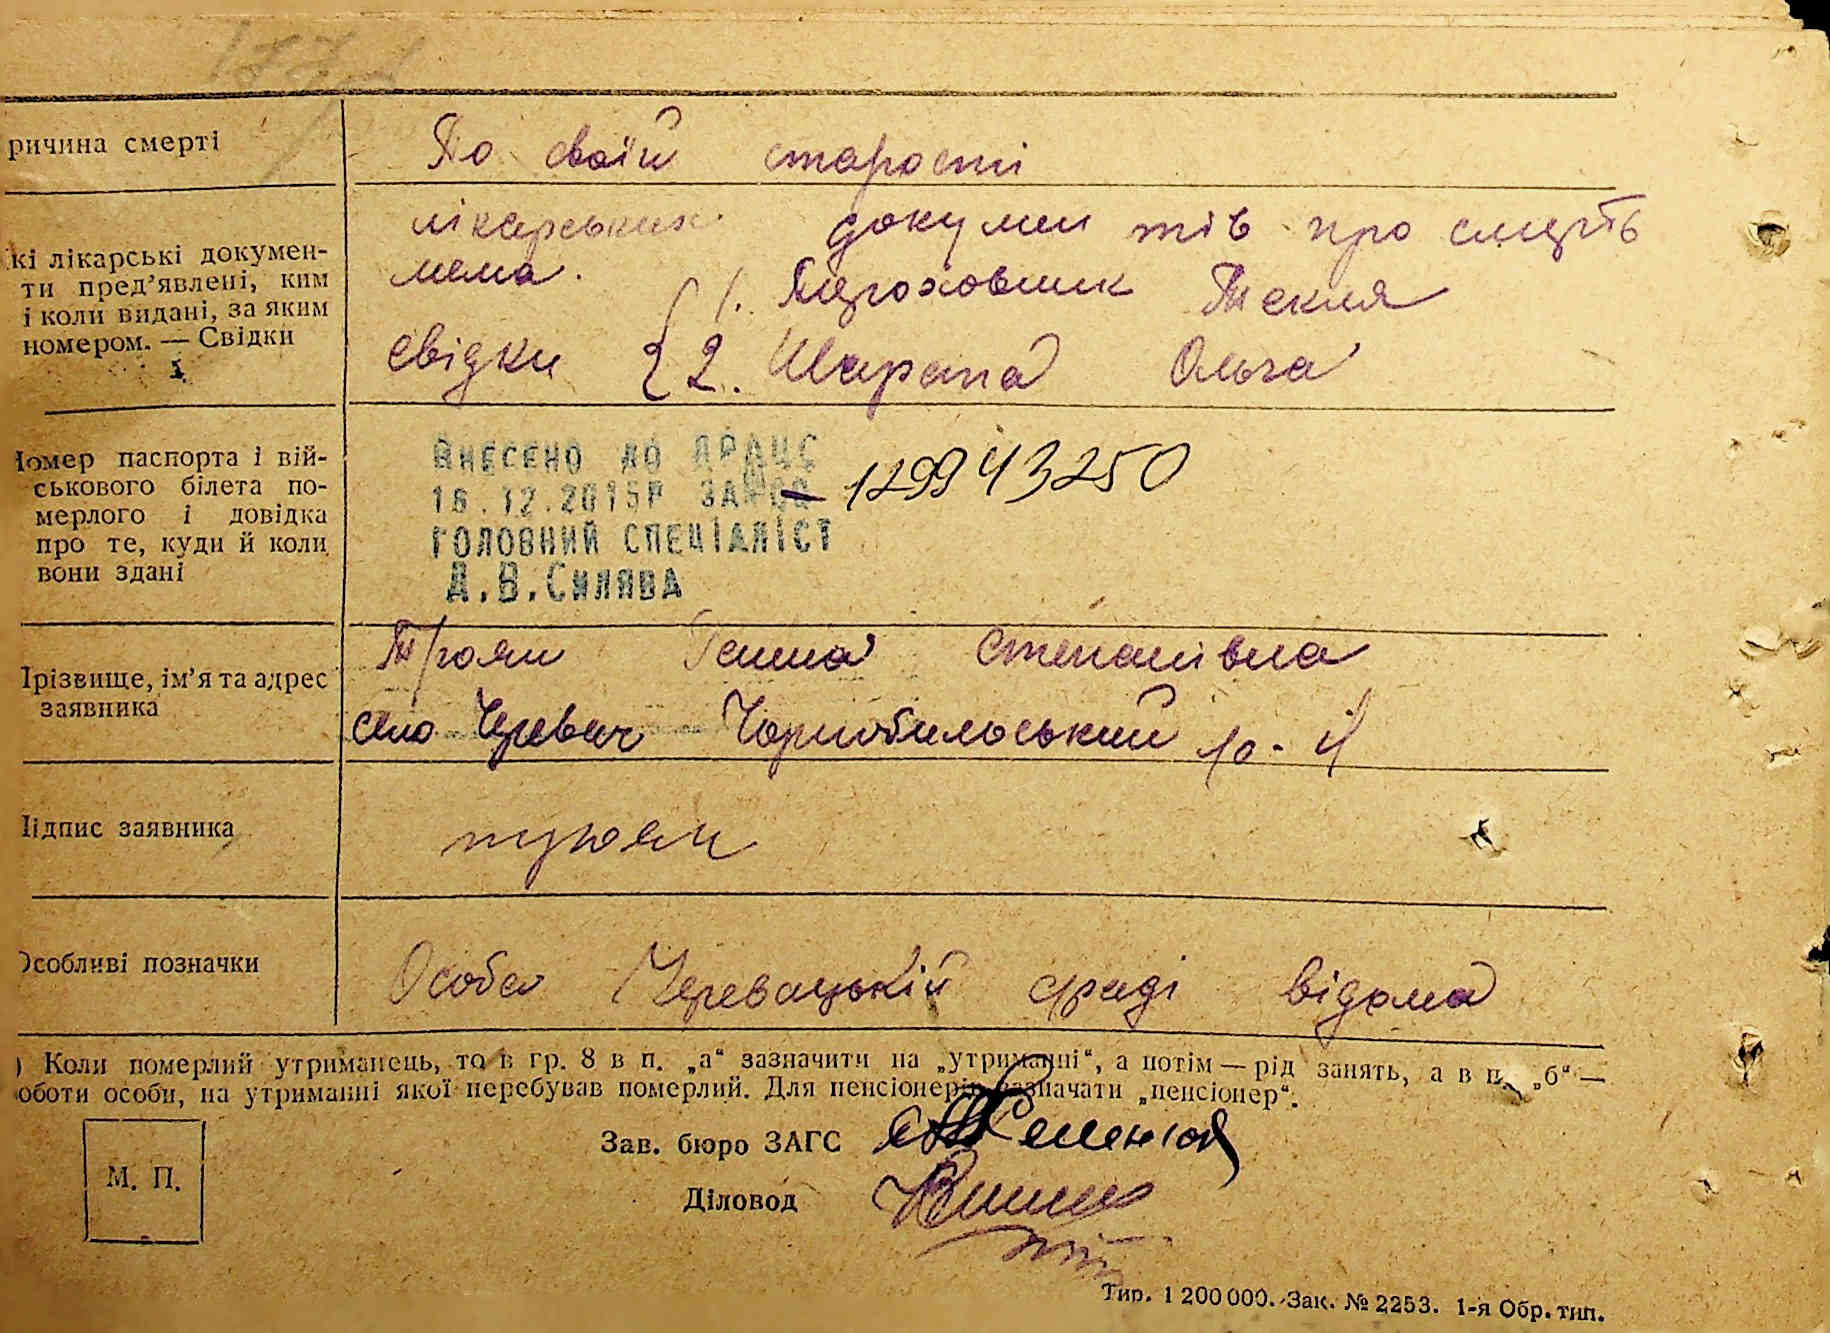 ричина смерті
По своїй старості
кі лікарські докумен-
ти пред’явлені, ким
і коли видані, за яким
номером. — Свідки
лікарських документів про смерть
нема.
1. Пирховник Текля
свідки { 2. Шарапа Ольга
Номер паспорта і вій-
ськового білета по-
мерлого і довідка
про те, куди й коли
вони здані
ВНЕСЕНО ДО ДРАЦС
16.12.2015Р ЗА №
— 129943250
ГОЛОВНИЙ СПЕЦІАЛІСТ
Д.В.Силява
Прізвище, ім’я та адрес
заявника
Троян Ганна Степанівна
село Черевач Чорнобильський р-н
Підпис заявника
троян
Особливі позначки
Особа Черевацькій с/раді відома
) Коли померлий утриманець, то в гр. 8 в п. „а“ зазначити на „утриманні“, а потім — рід занять, а в п. „б“ —
оботи особи, на утриманні якої перебував померлий. Для пенсіонерів зазначати „пенсіонер“.
Зав. бюро ЗАГС
М. П.
Діловод
Тир. 1 200 000. Зак. № 2253. 1-я Обр. тип.